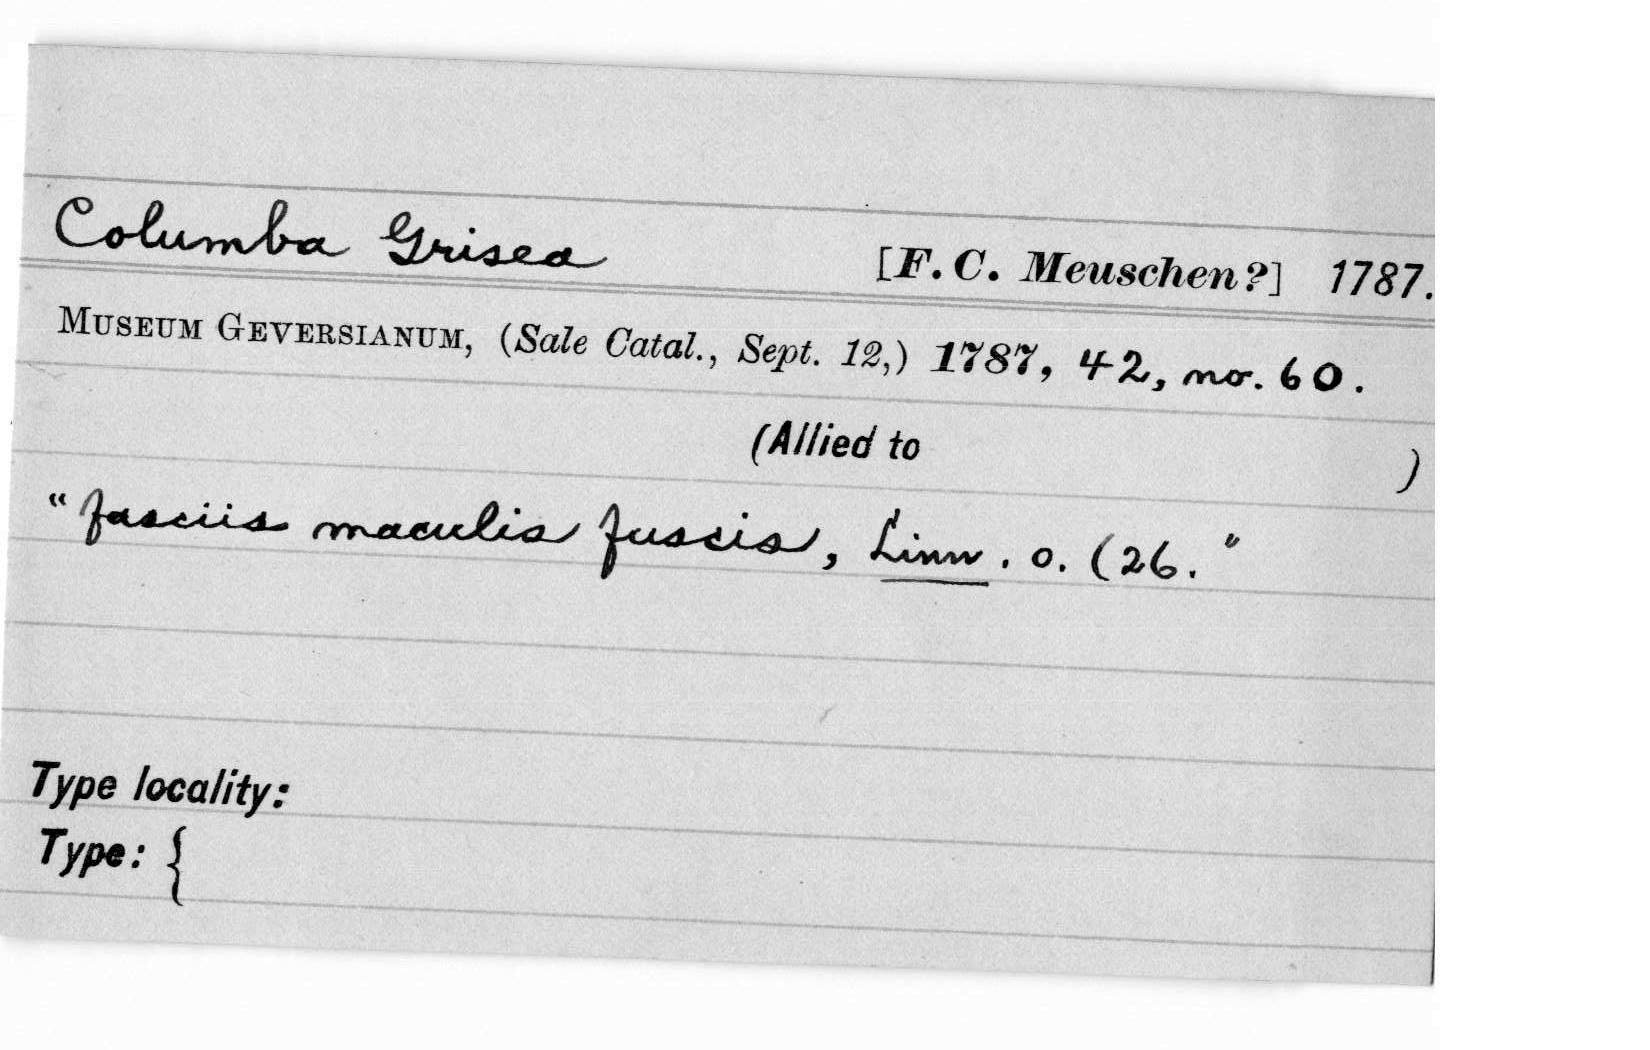 Columba Grisea [F. C. Meuschen?] 1787.
MUSEUM GEVERSIANUM, (Sale Catal., Sept. 12,) 1787, 42, no. 60.
(Allied to )
"fasciis maculis fuscis, Linn. o. (26."
Type locality:
Type: {